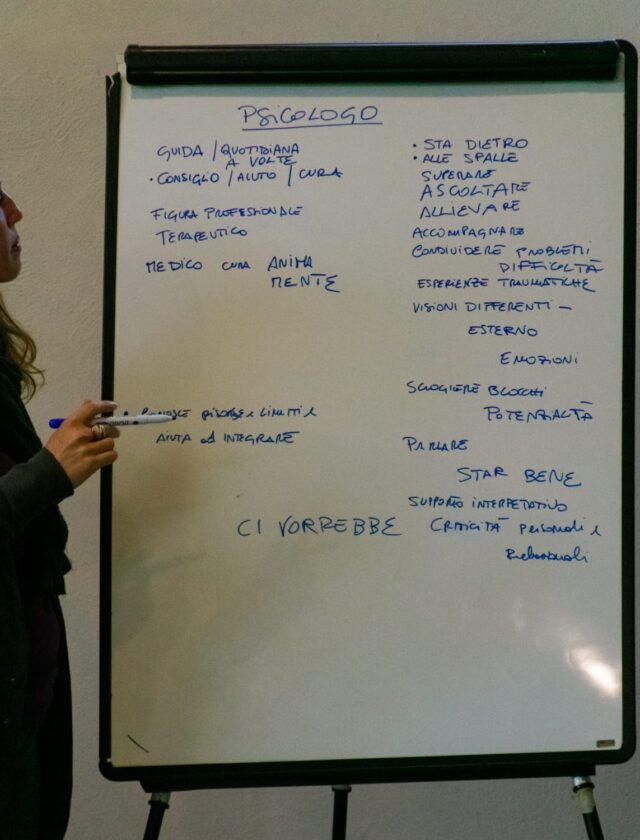 PSICOLOGO
GUIDA / QUOTIDIANA
A VOLTE
• CONSIGLIO / AIUTO / CURA
FIGURA PROFESSIONALE
TERAPEUTICO
MEDICO CURA ANIMA
MENTE
RISORSE E LIMITI E
AIUTA ad INTEGRARE
CI VORREBBE
• STA DIETRO
• ALLE SPALLE
SUPERARE
ASCOLTARE
ALLIEVARE
ACCOMPAGNARE
CONDIVIDERE PROBLEMI
DIFFICOLTÀ
ESPERIENZE TRAUMATICHE
VISIONI DIFFERENTI —
ESTERNO
EMOZIONI
SCIOGIERE BLOCCHI
POTENZIALTÀ
PARLARE
STAR BENE
SUPPORTO INTERPETATIVO
CRITICITÀ personali e
Relazionali